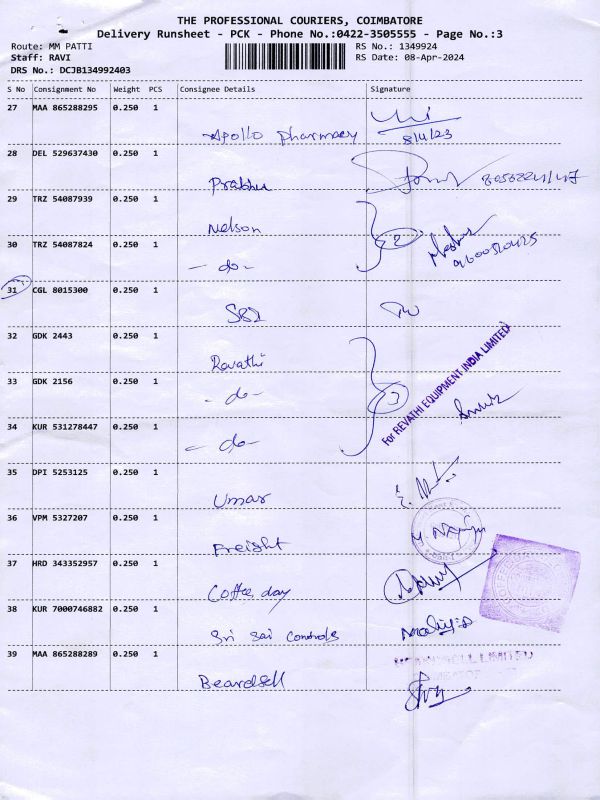 THE PROFESSIONAL COURIERS, COIMBATORE
Delivery Runsheet - PCK - Phone No.:0422-3505555 - Page No.:3
Route: MM PATTI RS No.: 1349924
Staff: RAVI RS Date: 08-Apr-2024
DRS No.: DCJB134992403
S No Consignment No Weight PCS Consignee Details Signature
27 MAA 865288295 0.250 1
Apollo pharmacy 8/4/23
28 DEL 529637430 0.250 1
Prabhu
29 TRZ 54087939 0.250 1
Nelson 2
30 TRZ 54087824 0.250 1
- do -
31 CGL 8015300 0.250 1
SBI
32 GDK 2443 0.250 1
Revathi
33 GDK 2156 0.250 1
- do - 3
For REVATHI EQUIPMENT INDIA LIMITED
34 KUR 531278447 0.250 1
- do -
35 DPI 5253125 0.250 1
Umar
36 VPM 5327207 0.250 1
Freight
37 HRD 343352957 0.250 1
Coffee day
38 KUR 7000746882 0.250 1
Sri Sai Controls
39 MAA 865288289 0.250 1
LIMITED
Beardsell